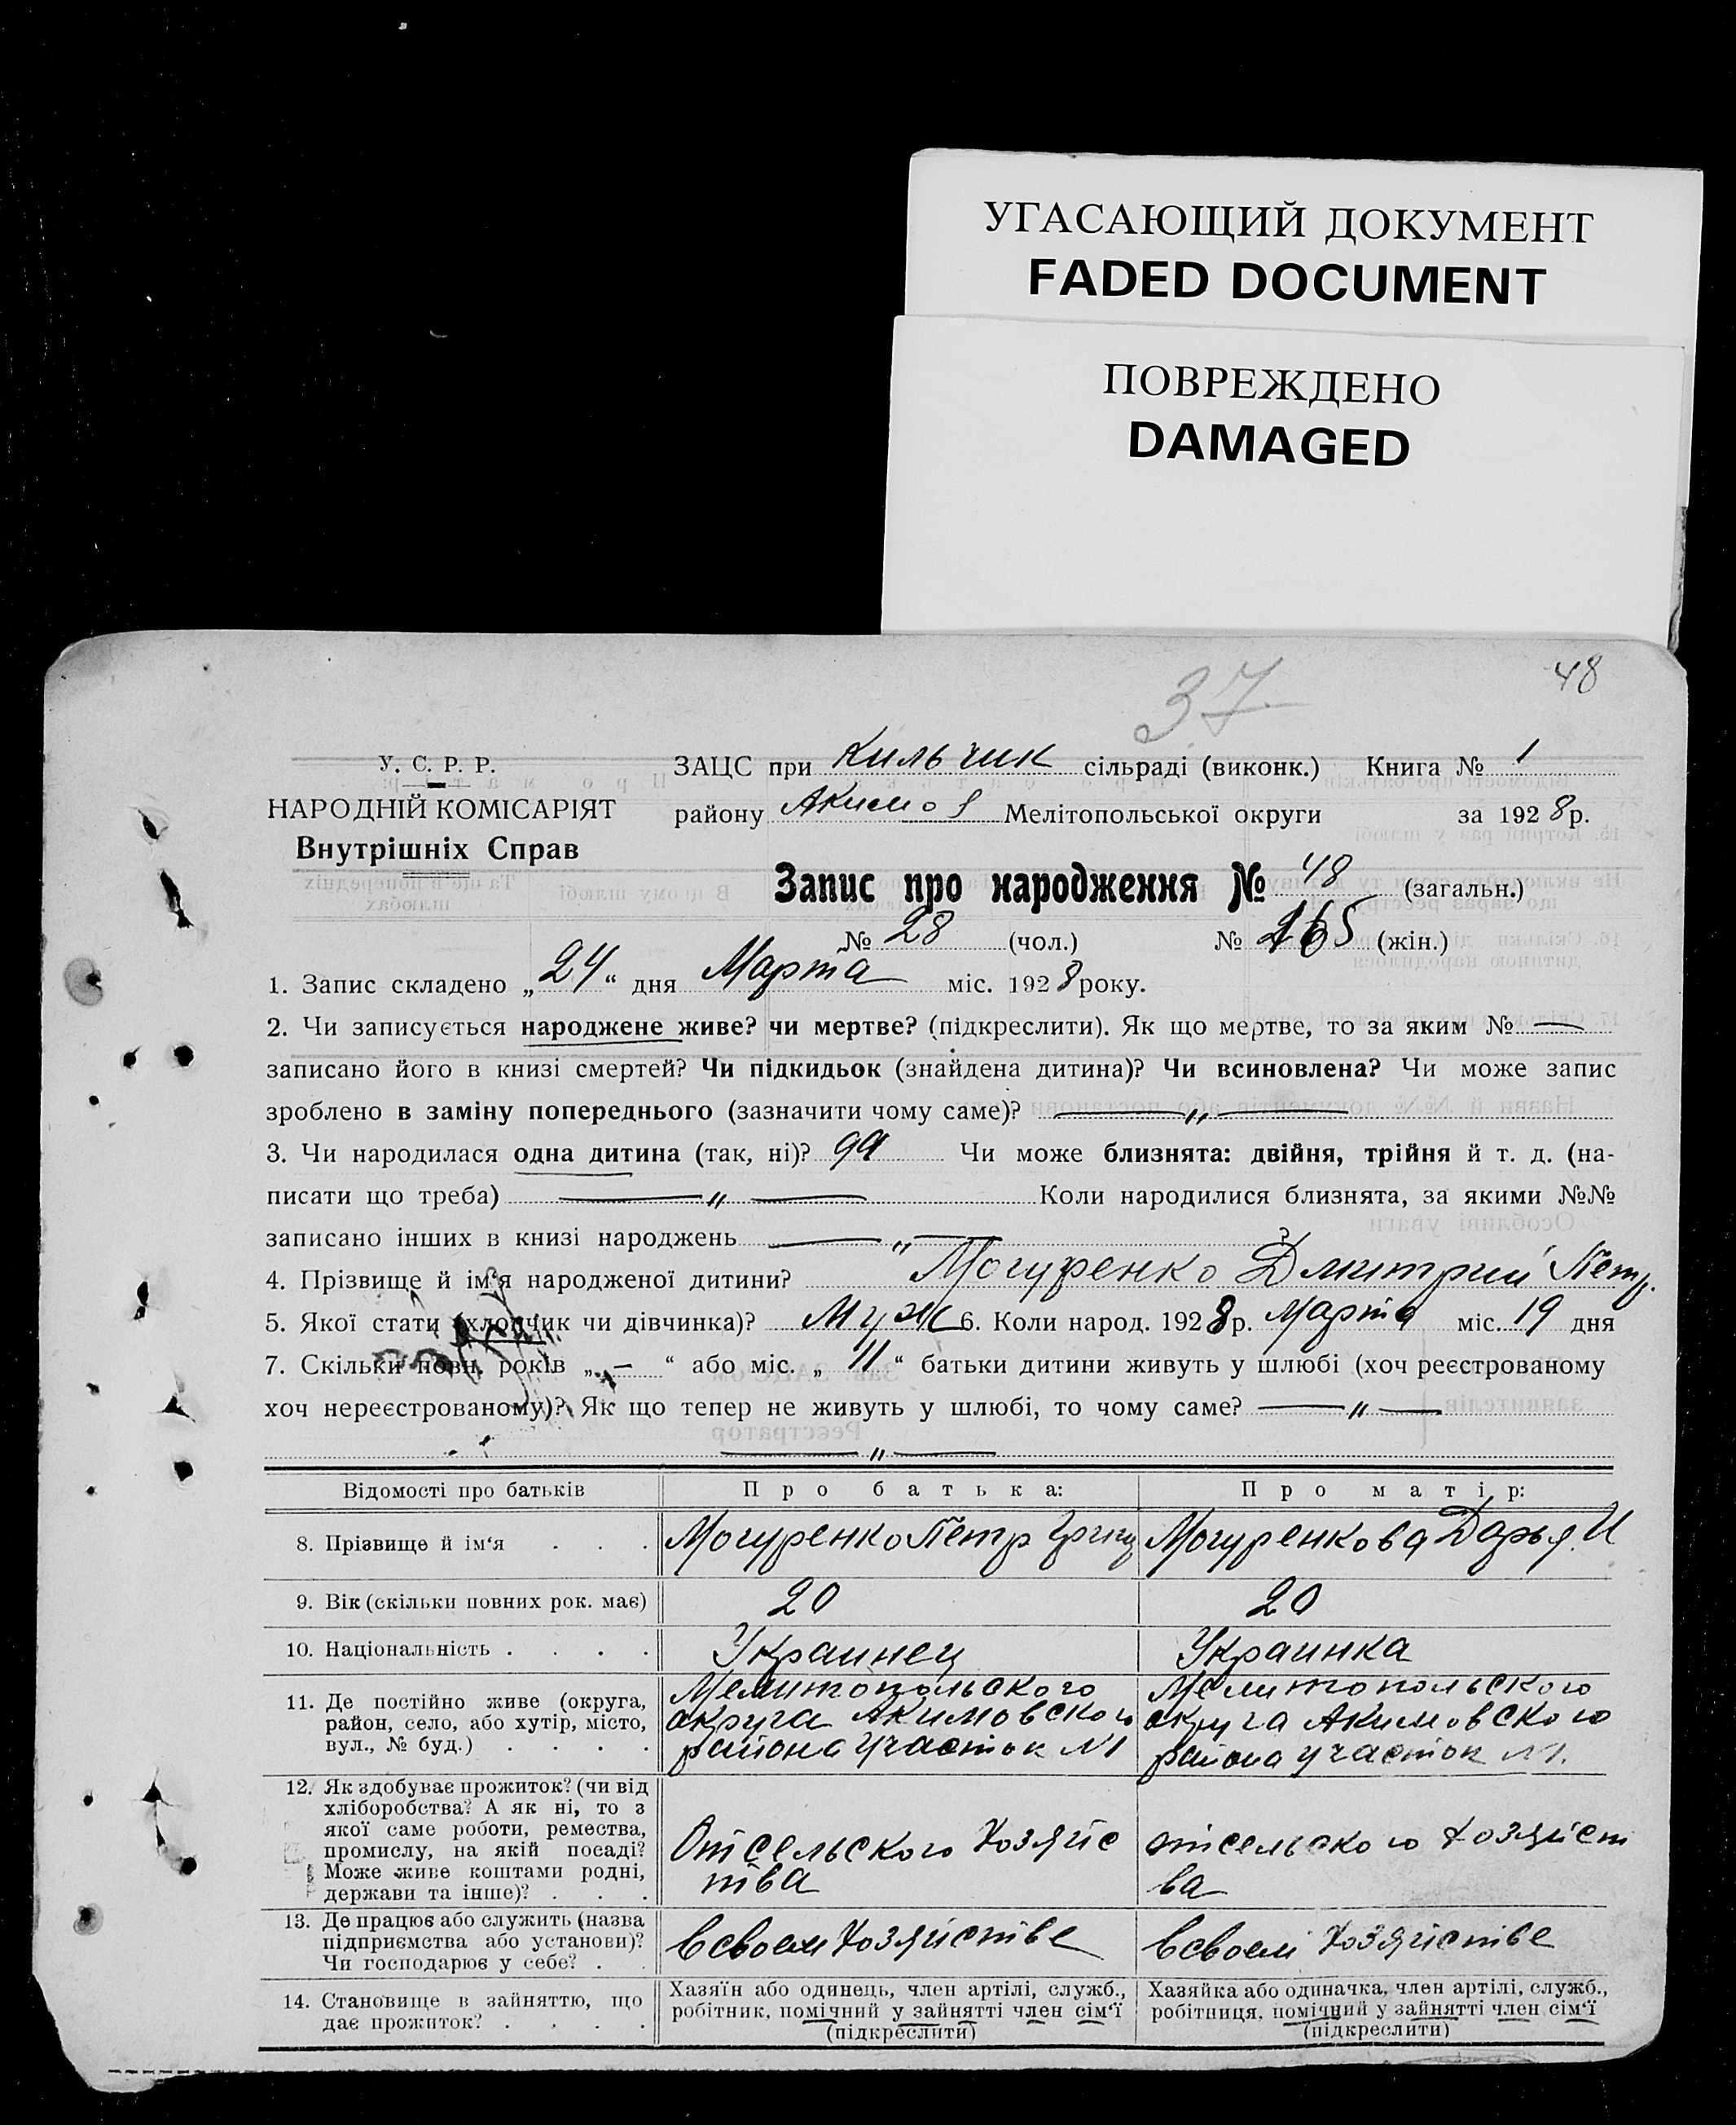 УГАСАЮЩИЙ ДОКУМЕНТ
FADED DOCUMENT
ПОВРЕЖДЕНО
DAMAGED
37
48
У. С. Р. Р.
НАРОДНІЙ КОМІСАРІЯТ
Внутрішніх Справ
ЗАЦС при Кильчик сільраді (виконк.) Книга № 1
району Акимов Мелітопольської округи за 1928р.
Запис про народження № 48 (загальн.)
№ 28 (чол.) № (жін.)
1. Запис складено „24“ дня Марта міс. 1928 року.
2. Чи записується народжене живе? чи мертве? (підкреслити). Як що мертве, то за яким № —
записано його в книзі смертей? Чи підкидьок (знайдена дитина)? Чи всиновлена? Чи може запис
зроблено в заміну попереднього (зазначити чому саме)? — „ —
3. Чи народилася одна дитина (так, ні)? Чи може близнята: двійня, трійня й т. д. (на-
писати що треба) — „ — Коли народилися близнята, за якими №№
записано інших в книзі народжень — „ —
4. Прізвище й ім‘я народженої дитини? Могуренко Дмитрий Петр.
5. Якої стати (хлопчик чи дівчинка)? Муж 6. Коли народ. 1928р. Марта міс. 19 дня
7. Скільки повн. років „ — “ або міс. „ 11 “ батьки дитини живуть у шлюбі (хоч реєстрованому
хоч нереєстрованому)? Як що тепер не живуть у шлюбі, то чому саме? — „ —
— „ —
Відомості про батьків Про батька: Про матір:
8. Прізвище й ім‘я . . . Могуренко Петр Григ Могуренкова Дарья И
9. Вік (скільки повних рок. має) 20 20
10. Національність . . . . Украинец Украинка
11. Де постійно живе (округа,
район, село, або хутір, місто,
вул., № буд.) . . . .
Мелитопольского
округа Акимовского
района участок N1
Мелитопольского
округа Акимовского
района участок N1.
12. Як здобуває прожиток? (чи від
хліборобства? А як ні, то з
якої саме роботи, ремества,
промислу, на якій посаді?
Може живе коштами родні,
держави та інше)? . . .
Отсельского хозяйс
тва
отсельского хозяйст
ва
13. Де працює або служить (назва
підприємства або установи)?
Чи господарює у себе? . .
Всвоем хозяйстве
Всвоем хозяйстве
14. Становище в зайняттю, що
дає прожиток? . . . .
Хазяїн або одинець, член артілі, служб.,
робітник, помічний у зайнятті член сім‘ї
(підкреслити)
Хазяйка або одиначка, член артілі, служб.,
робітниця, помічний у зайнятті член сім‘ї
(підкреслити)